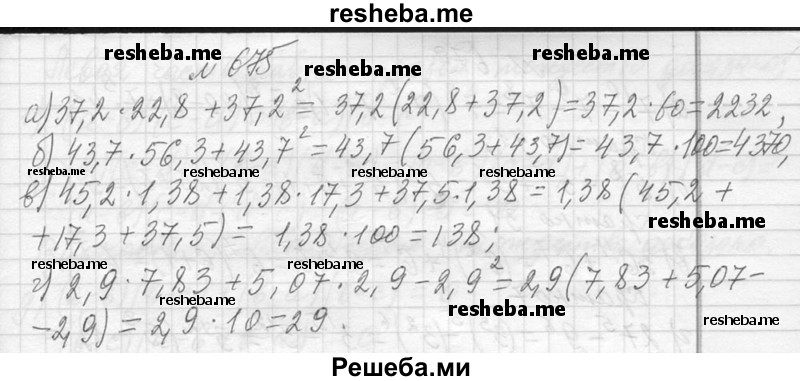 resheba.me
resheba.me resheba.me
№ 675 resheba.me
а) 37,2 · 22,8 + 37,2² = 37,2 (22,8 + 37,2) = 37,2 · 60 = 2232,
б) 43,7 · 56,3 + 43,7² = 43,7 (56,3 + 43,7) = 43,7 · 100 = 4370,
resheba.me resheba.me resheba.me
в) 45,2 · 1,38 + 1,38 · 17,3 + 37,5 · 1,38 = 1,38 (45,2 +
resheba.me
+ 17,3 + 37,5) = 1,38 · 100 = 138;
resheba.me resheba.me
г) 2,9 · 7,83 + 5,07 · 2,9 - 2,9² = 2,9 (7,83 + 5,07 -
resheba.me resheba.me
resheba.me
- 2,9) = 2,9 · 10 = 29.
Решеба.ми